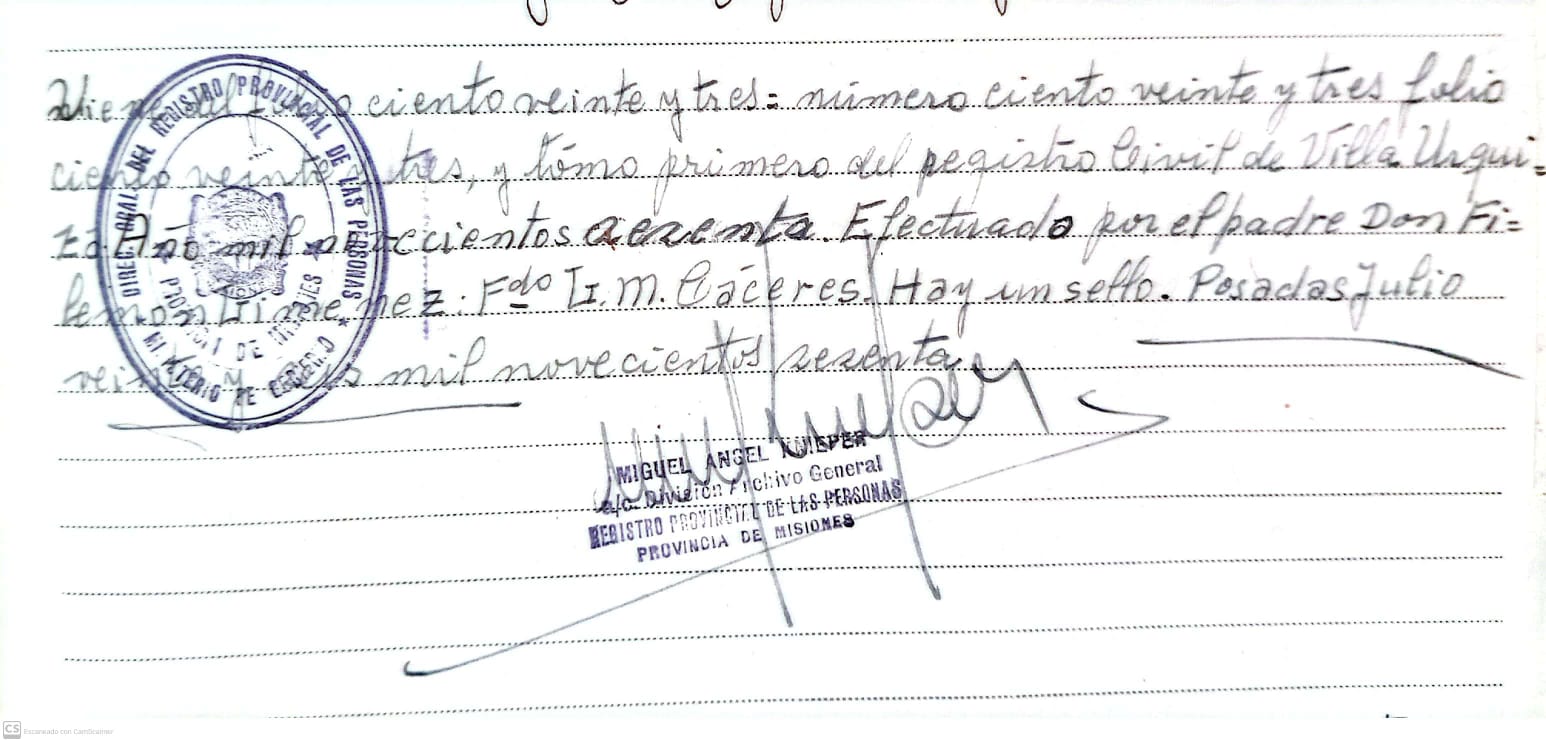 Viene del folio ciento veinte y tres= número ciento veinte y tres folio
ciento veinte y tres, y tómo primero del registro Civil de Villa Urqui=
za Año mil novecientos sesenta. Efectuado por el padre Don Fi=
lemón Jimenez: Fdo I. M. Cáceres. Hay un sello. Posadas Julio
veinte y seis mil novecientos sesenta
DIREC. GRAL. DEL REGISTRO PROVINCIAL DE LAS PERSONAS
PROVINCIA DE MISIONES
MINISTERIO DE GOBIERNO
MIGUEL ANGEL KNIEPER
a/c. División Archivo General
REGISTRO PROVINCIAL DE LAS PERSONAS
PROVINCIA DE MISIONES
CS Escaneado con CamScanner